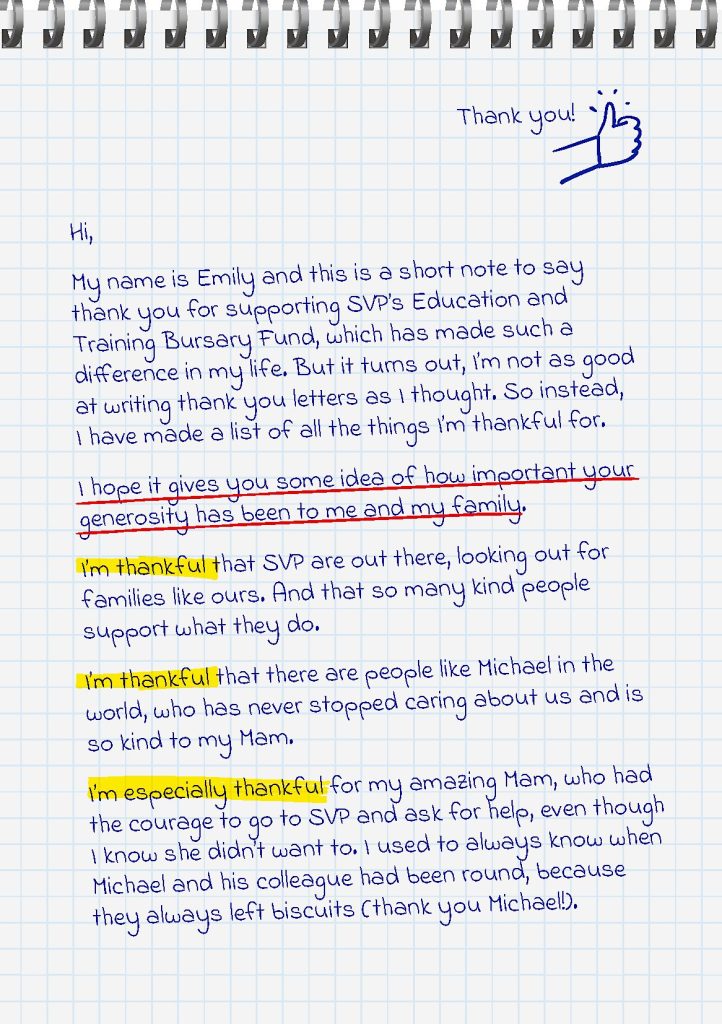 Thank you!
Hi,
My name is Emily and this is a short note to say
thank you for supporting SVP's Education and
Training Bursary Fund, which has made such a
difference in my life. But it turns out, I'm not as good
at writing thank you letters as I thought. So instead,
I have made a list of all the things I'm thankful for.
I hope it gives you some idea of how important your
generosity has been to me and my family.
I'm thankful that SVP are out there, looking out for
families like ours. And that so many kind people
support what they do.
I'm thankful that there are people like Michael in the
world, who has never stopped caring about us and is
so kind to my Mam.
I'm especially thankful for my amazing Mam, who had
the courage to go to SVP and ask for help, even though
I know she didn't want to. I used to always know when
Michael and his colleague had been round, because
they always left biscuits (thank you Michael!).